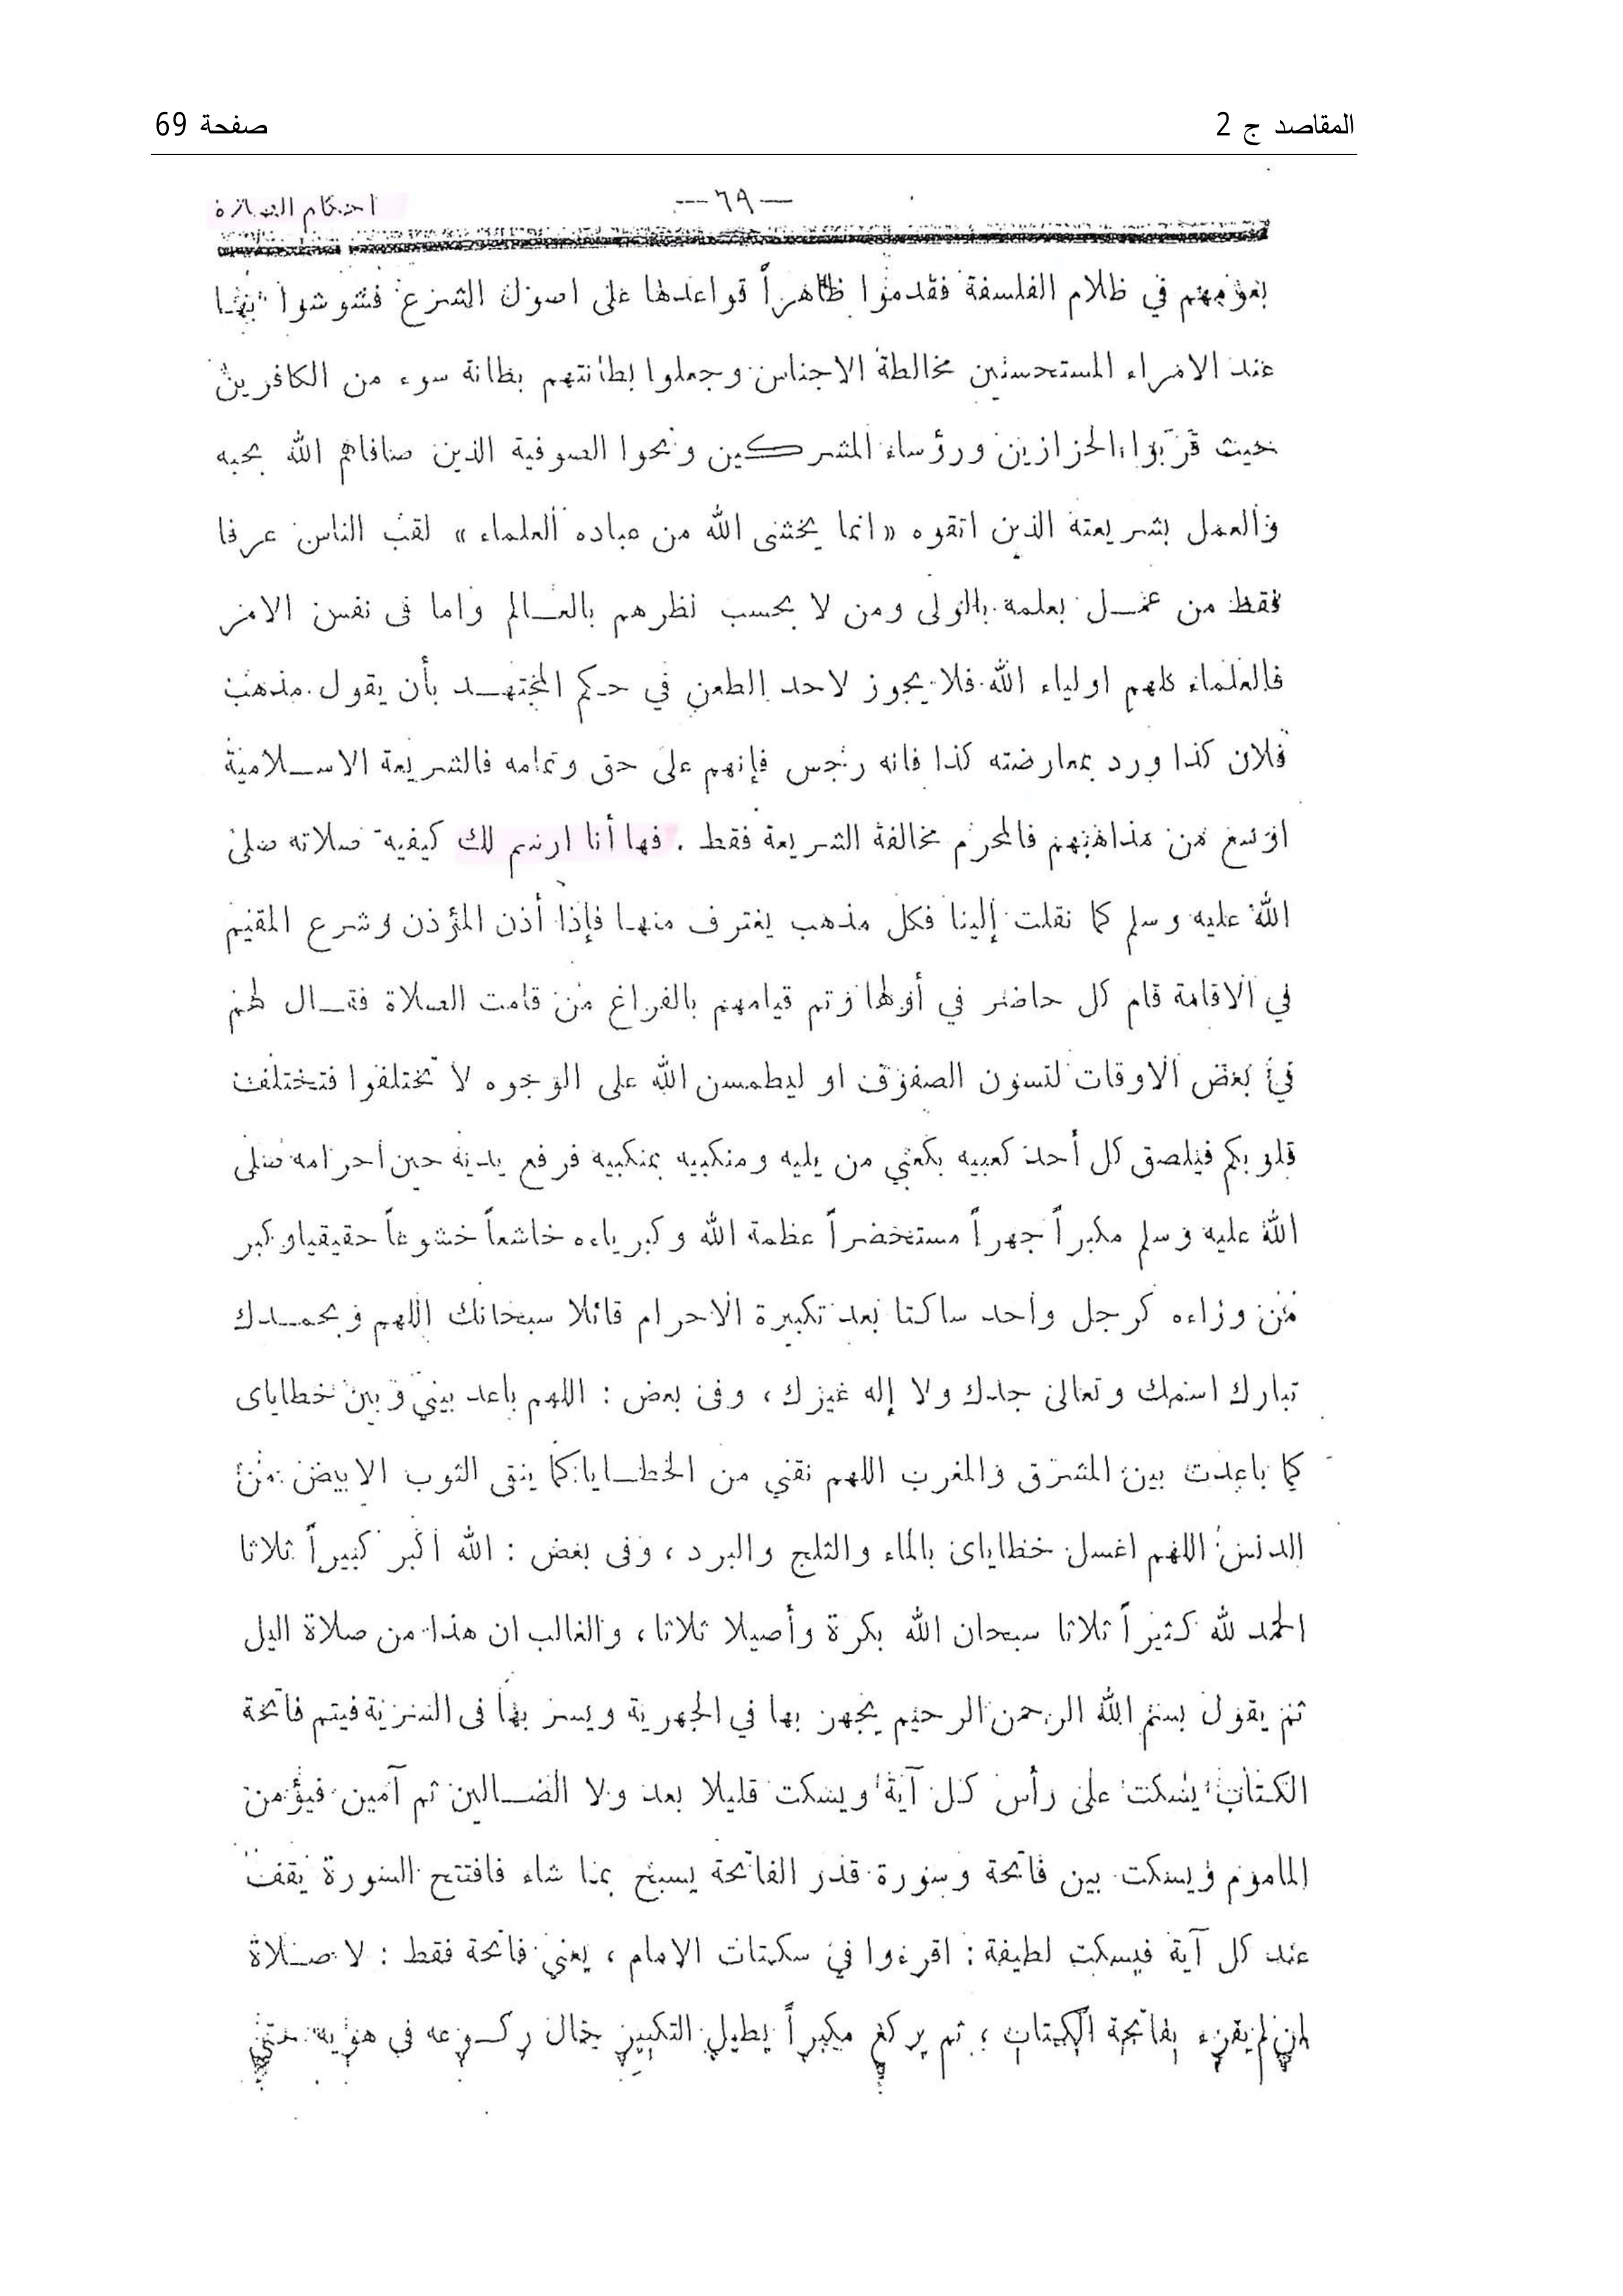 المقاصد ج 2
صفحة 69
— ٦٩ —
في ظلام الفلسفة فقدموا ظاهراً قواعدها على اصول الشرع فشوشوا بها
عند الامراء المستحسنين مخالطة الاجناس وجعلوا بطانتهم بطانة سوء من الكافرين
حيث قربوا الحزازين ورؤساء المشركين ونحوا الصوفية الذين صافاهم الله بحبه
والعمل بشريعته الذين اتقوه «انما يخشى الله من عباده العلماء» لقب الناس عرفا
فقط من عمل بعلمه بالولى ومن لا بحسب نظرهم بالعالم واما فى نفس الامر
فالعلماء كلهم اولياء الله فلا يجوز لاحد الطعن في حكم المجتهد بأن يقول مذهب
فلان كذا ورد بمعارضته كذا فانه رجس فإنهم على حق وتمامه فالشريعة الاسلامية
اوسع من مذاهبهم فالمحرم مخالفة الشريعة فقط . فها أنا ارسم لك كيفية صلاته صلى
الله عليه وسلم كما نقلت إلينا فكل مذهب يغترف منها فإذا أذن المؤذن وشرع المقيم
في الاقامة قام كل حاضر في أولها وتم قيامهم بالفراغ من قامت الصلاة فقال لهم
في بعض الاوقات لتسون الصفوف او ليطمسن الله على الوجوه لا تختلفوا فتختلف
قلوبكم فيلصق كل أحد كعبيه بكعبي من يليه ومنكبيه بمنكبيه فرفع يديه حين احرامه صلى
الله عليه وسلم مكبراً جهراً مستحضراً عظمة الله وكبرياءه خاشعاً خشوعاً حقيقيا وكبر
من وراءه كرجل واحد ساكتا بعد تكبيرة الاحرام قائلا سبحانك اللهم وبحمدك
تبارك اسمك وتعالى جدك ولا إله غيرك ، وفى بعض : اللهم باعد بيني وبين خطاياى
كما باعدت بين المشرق والمغرب اللهم نقني من الخطايا كما ينقى الثوب الابيض من
الدنس اللهم اغسل خطاياى بالماء والثلج والبرد ، وفى بعض : الله اكبر كبيراً ثلاثا
الحمد لله كثيراً ثلاثا سبحان الله بكرة وأصيلا ثلاثا ، والغالب ان هذا من صلاة اليل
ثم يقول بسم الله الرحمن الرحيم يجهر بها في الجهرية ويسر بها فى السرية فيتم فاتحة
الكتاب يسكت على رأس كل آية ويسكت قليلا بعد ولا الضالين ثم آمين فيؤمن
الماموم ويسكت بين فاتحة وسورة قدر الفاتحة يسبح بما شاء فافتتح السورة يقف
عند كل آية فيسكت لطيفة : اقرءوا في سكتات الامام ، يعني فاتحة فقط : لا صلاة
لمن لم يقرء بفاتحة الكتاب ؛ ثم يركع مكبراً يطيل التكبير بحال ركوعه في هويه حتى